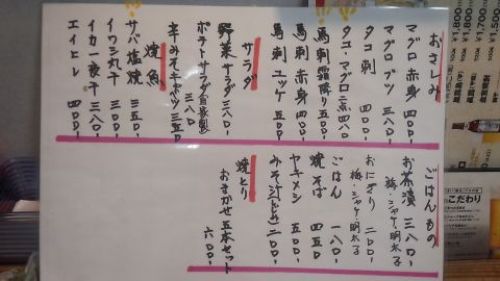 おさしみ
マグロ赤身 四〇〇-
マグロブツ 三八〇-
タコ刺 四〇〇-
タコ・マグロ二点 四八〇
馬刺霜降り 五五〇-
馬刺赤身 四〇〇-
馬刺ユッケ 五〇〇-
サラダ
野菜サラダ 三八〇-
ポテトサラダ(自家製)
三八〇-
辛みそキャベツ 三五〇
焼魚
サバ塩焼 三五〇-
イワシ丸干 三〇〇-
イカ一夜干 三八〇-
エイヒレ 四〇〇-
ごはんもの
お茶漬 三八〇-
梅・シャケ・明太子
おにぎり 二〇〇-
梅・シャケ・明太子
ごはん 一八〇-
焼そば 四五〇
ヤキメシ 五〇〇-
みそ汁 二〇〇-
焼とり
おまかせ五本セット
六〇〇-
こだわり
1,800
1,700
1,500